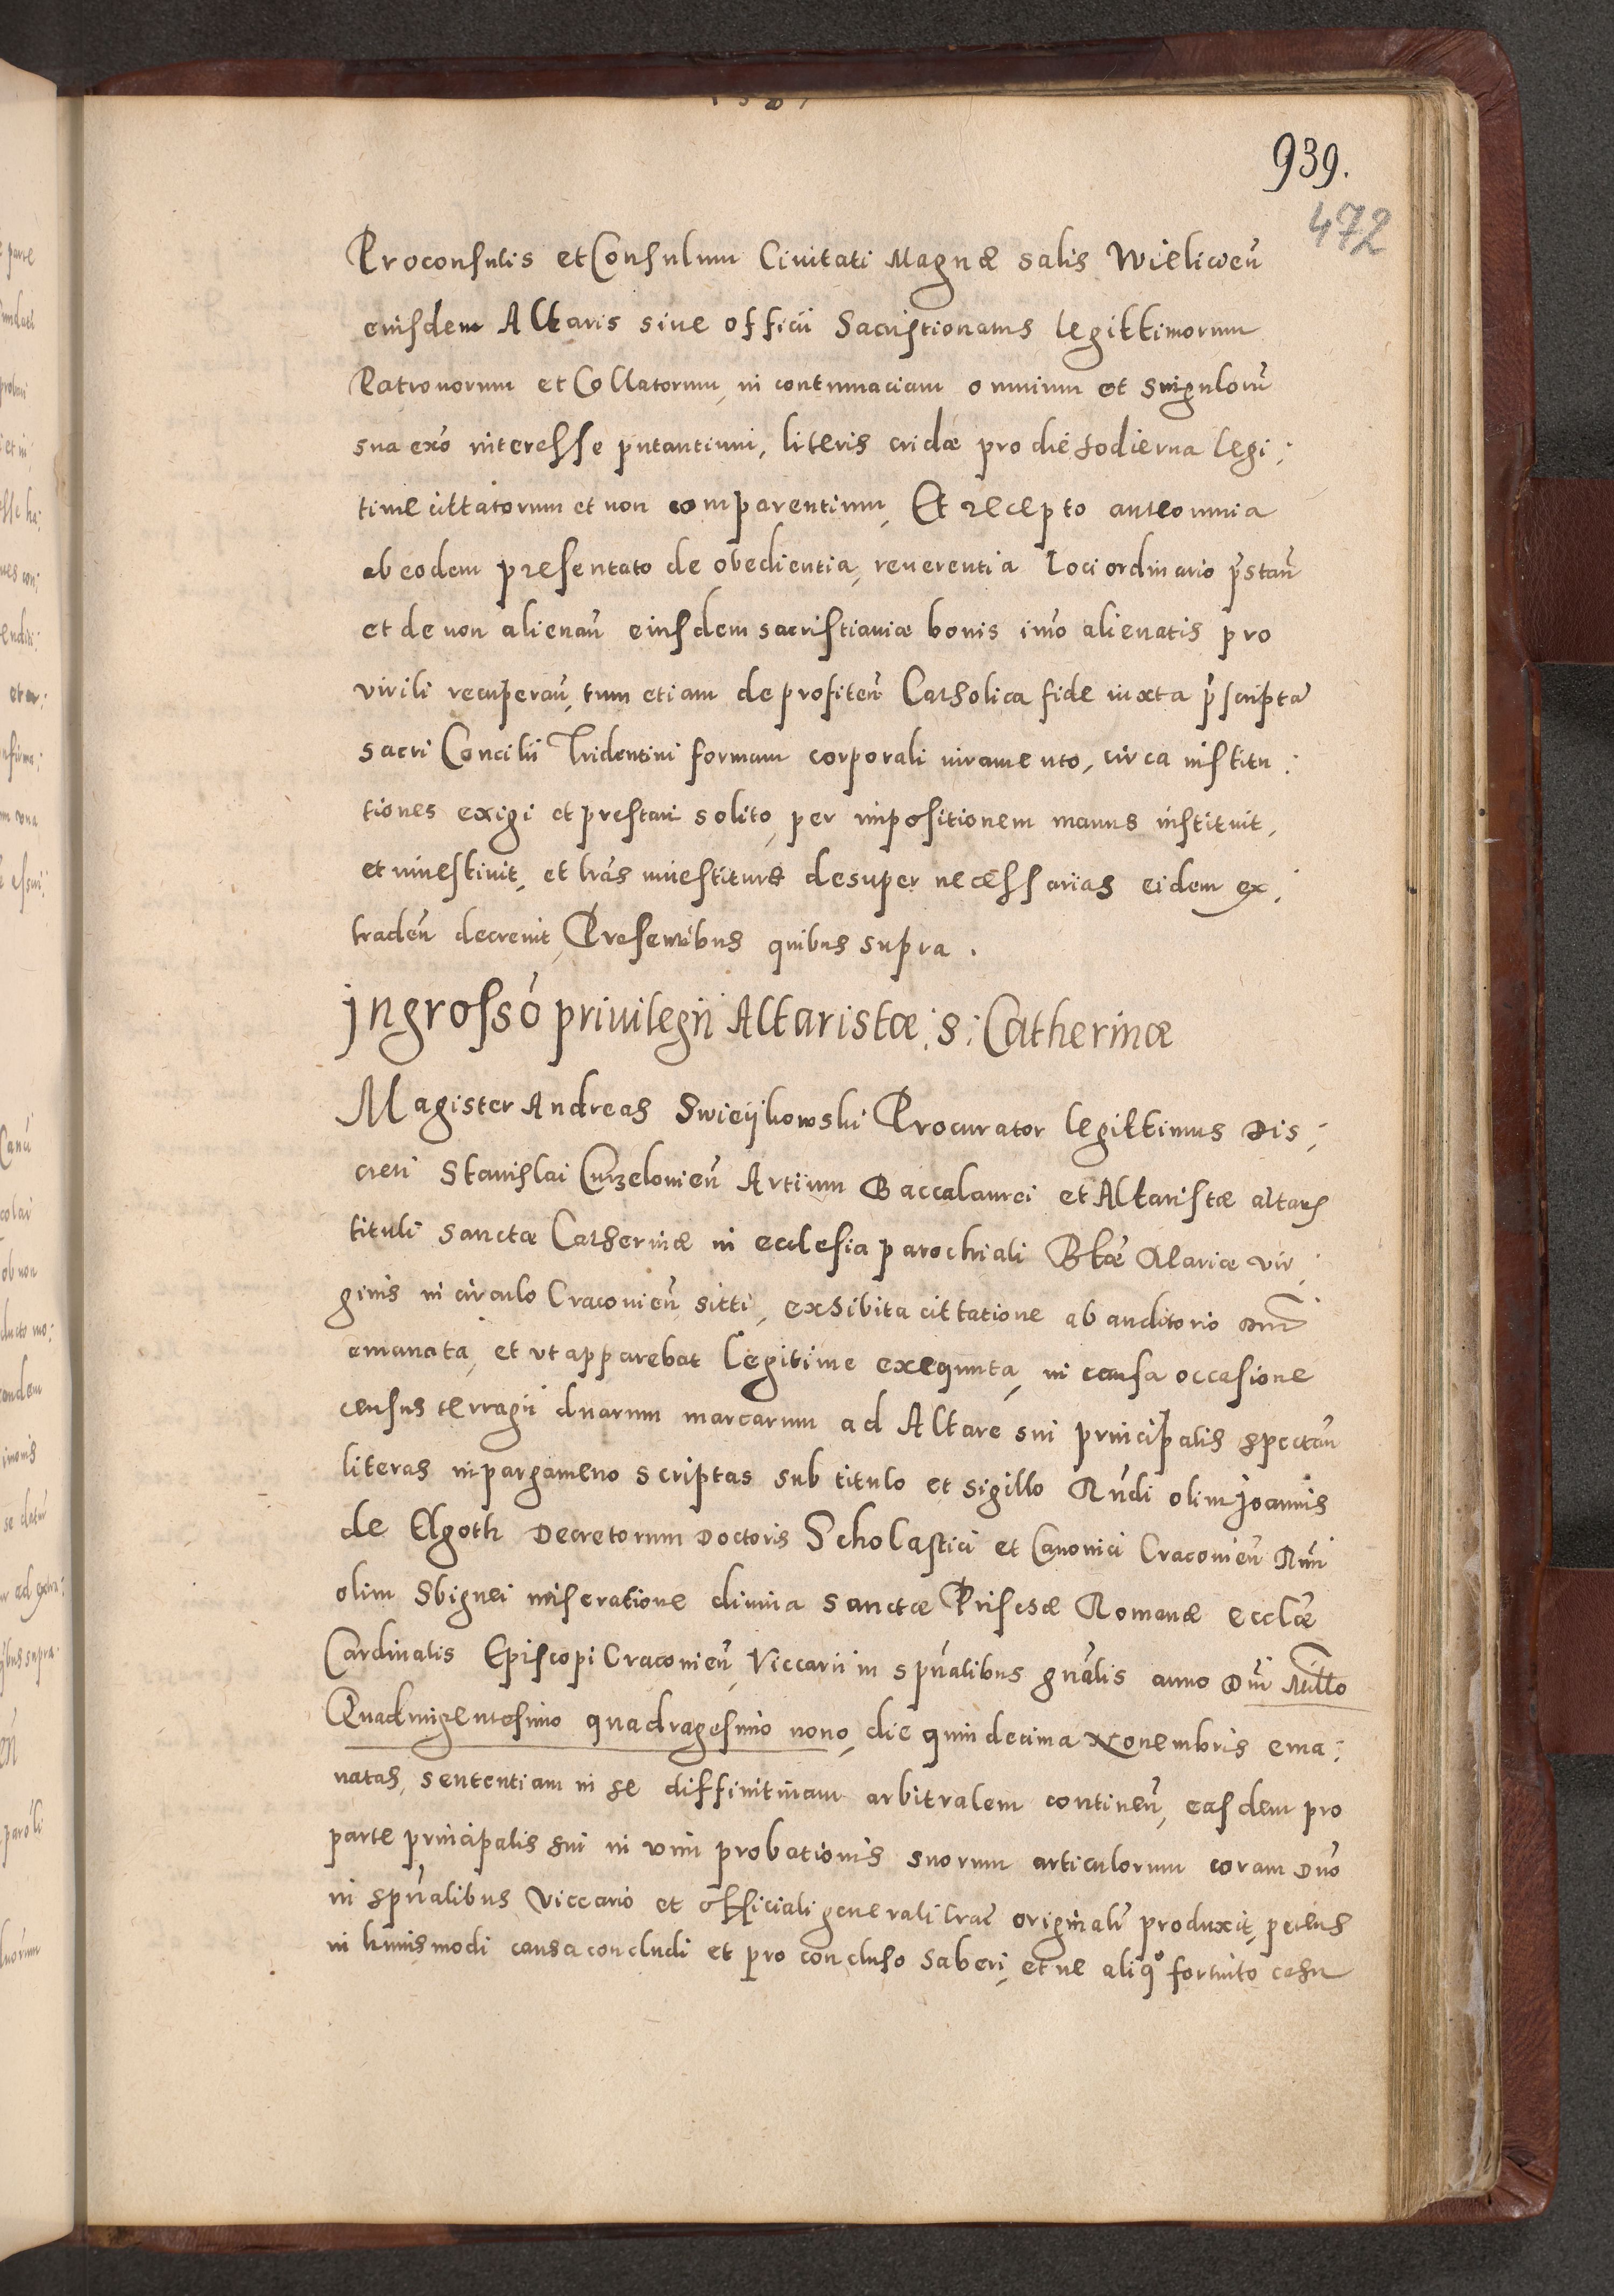 939.
472
Proconsulis et Consulum Ciuitati Magnæ salis Wielicień
eiusdem Altaris siue officii Sacristionatus legittimorum
Patronorum et Collatorum, in contumaciam omnium et singulorũ
sua exõ interesse putantium, literis cridæ pro die hodierna legi:
time cittatorum et non comparentium, Et recepto ante omnia
ab eodem presentato de obedientia, reuerentia loci ordinario p̃stañ
et de non alienañ eiusdem sacristianiæ bonis imo alienatis pro
virili recuperañ, tum etiam de profiteñ Catholica fide iuxta p̃scripta
sacri Concilii Tridentini formam corporali iuramento, circa institu:
tiones exigi et prestari solito, per impositionem manus instituit,
et inuestiuit, et l̃ras inuestituræ desuper necessarias eidem ex:
tradeñ decreuit, Presentibus quibus supra.
Ingrossõ priuilegii Altaristæ :S: Catherinæ
Magister Andreas Swieykowski Procurator legittimus Dis:
creti Stanislai Curzelouieñ Artium Baccalaurei et Altaristæ altaris
tituli sanctæ Catherinæ in ecclesia parochiali Btæ Mariæ vir:
ginis in circulo Cracouieñ sitti, exhibita cittatione ab auditorio
emanata, et vt apparebat legitime exequuta, in causa occasione
census terragii duarum marcarum ad Altare sui principalis spectañ
literas in pargameno scriptas sub titulo et sigillo Rñdi olim Joannis
de Elgoth Decretorum Doctoris Scholastici et Canonici Cracouieñ Rmi
olim Sbignei miseratione diuina sanctæ Priscæ Romanæ ecclæ
Cardinalis Episcopi Cracouieñ, Viccarii in spũalibus gñalis anno Dñi Millo
Quadringentesimo quadragesimo nono, die quindecima Nouembris ema:
natas, sententiam in se diffinitiuam arbitralem contineñ, easdem pro
parte principalis sui in vim probationis suorum articulorum coram Dño
in spũalibus Viccario et officiali generali Crac̃ originalr̃ produxit, petens
in huiusmodi causa concludi et pro concluso haberi, et ne aliqº fortuito casu